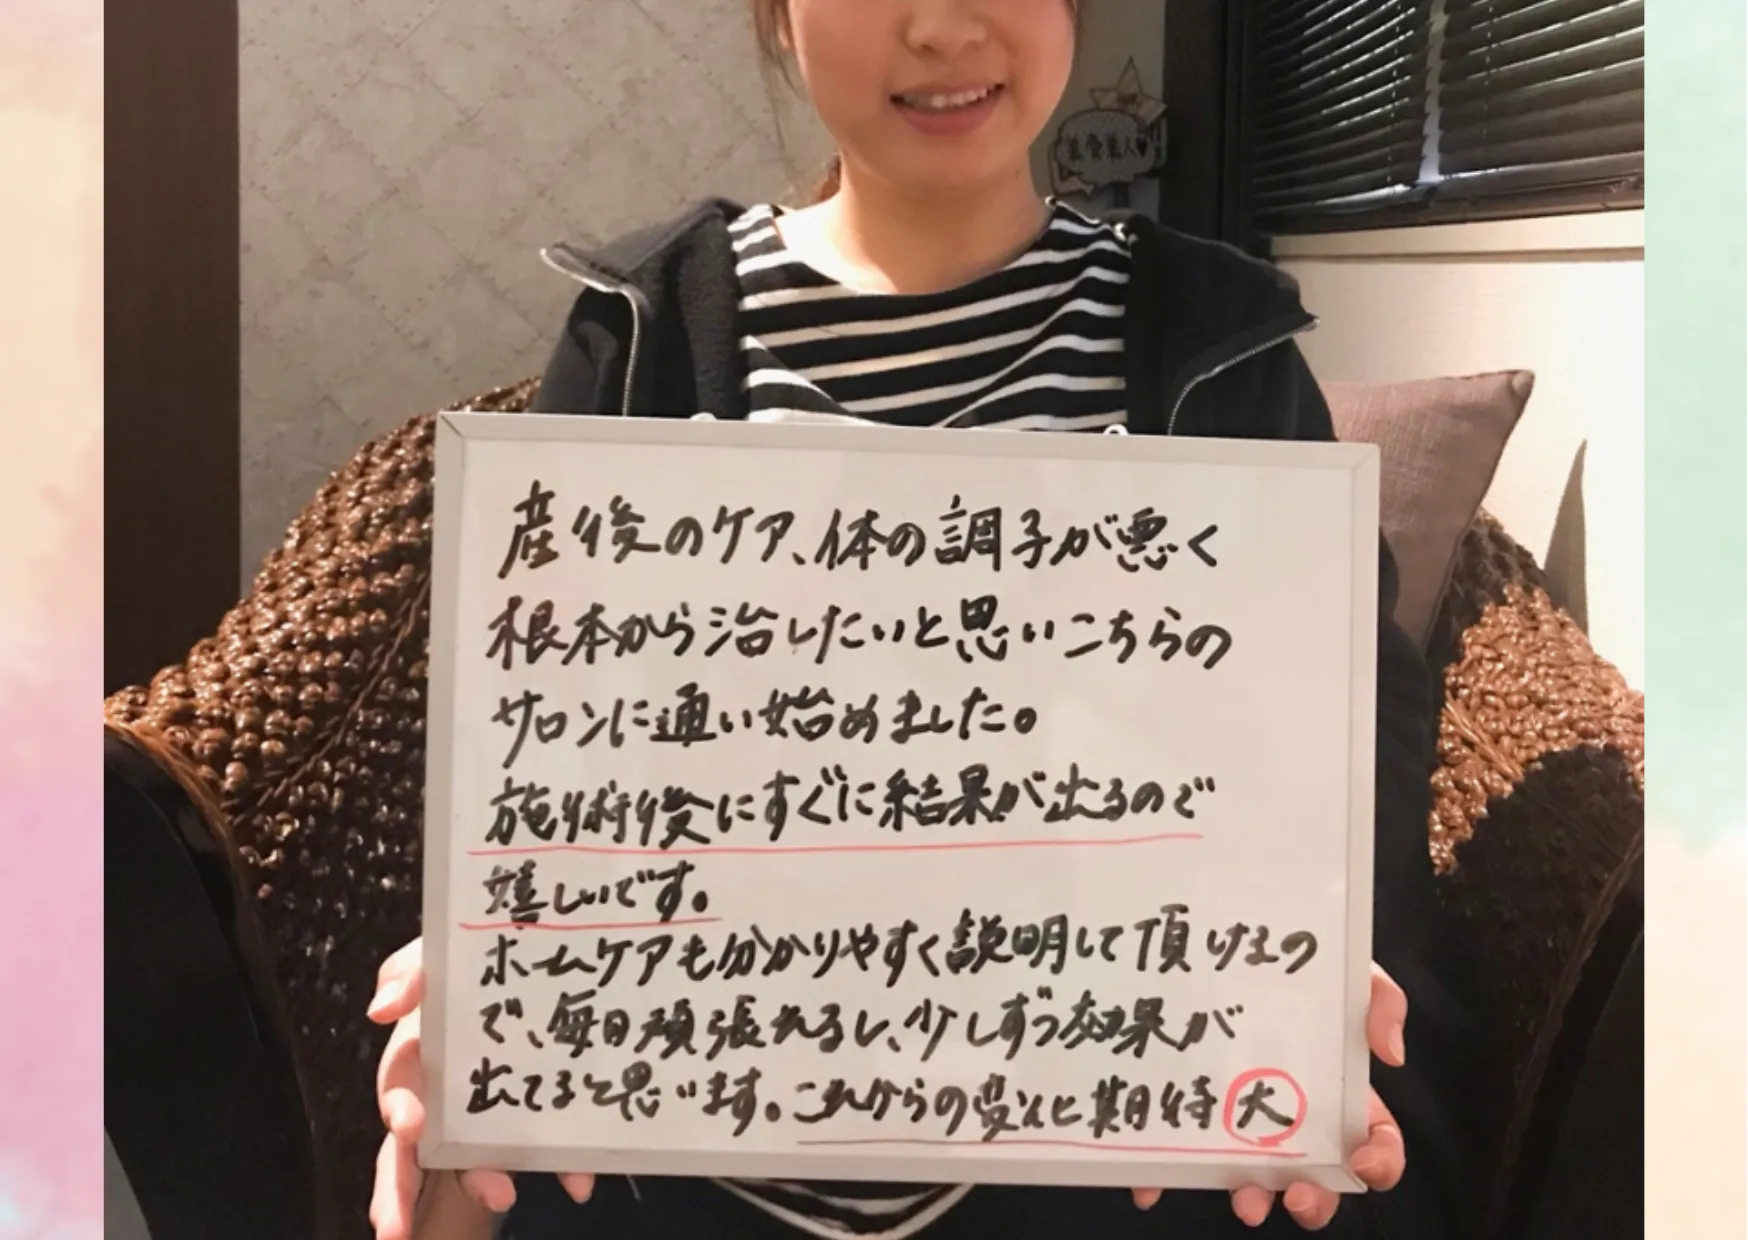 産後のケア、体の調子が悪く
根本から治したいと思いこちらの
サロンに通い始めました。
施術後にすぐに結果が出るので
嬉しいです。
ホームケアも分かりやすく説明して頂けるの
で、毎日頑張れるし、少しずつ効果が
出てると思います。これからの変化に期待大